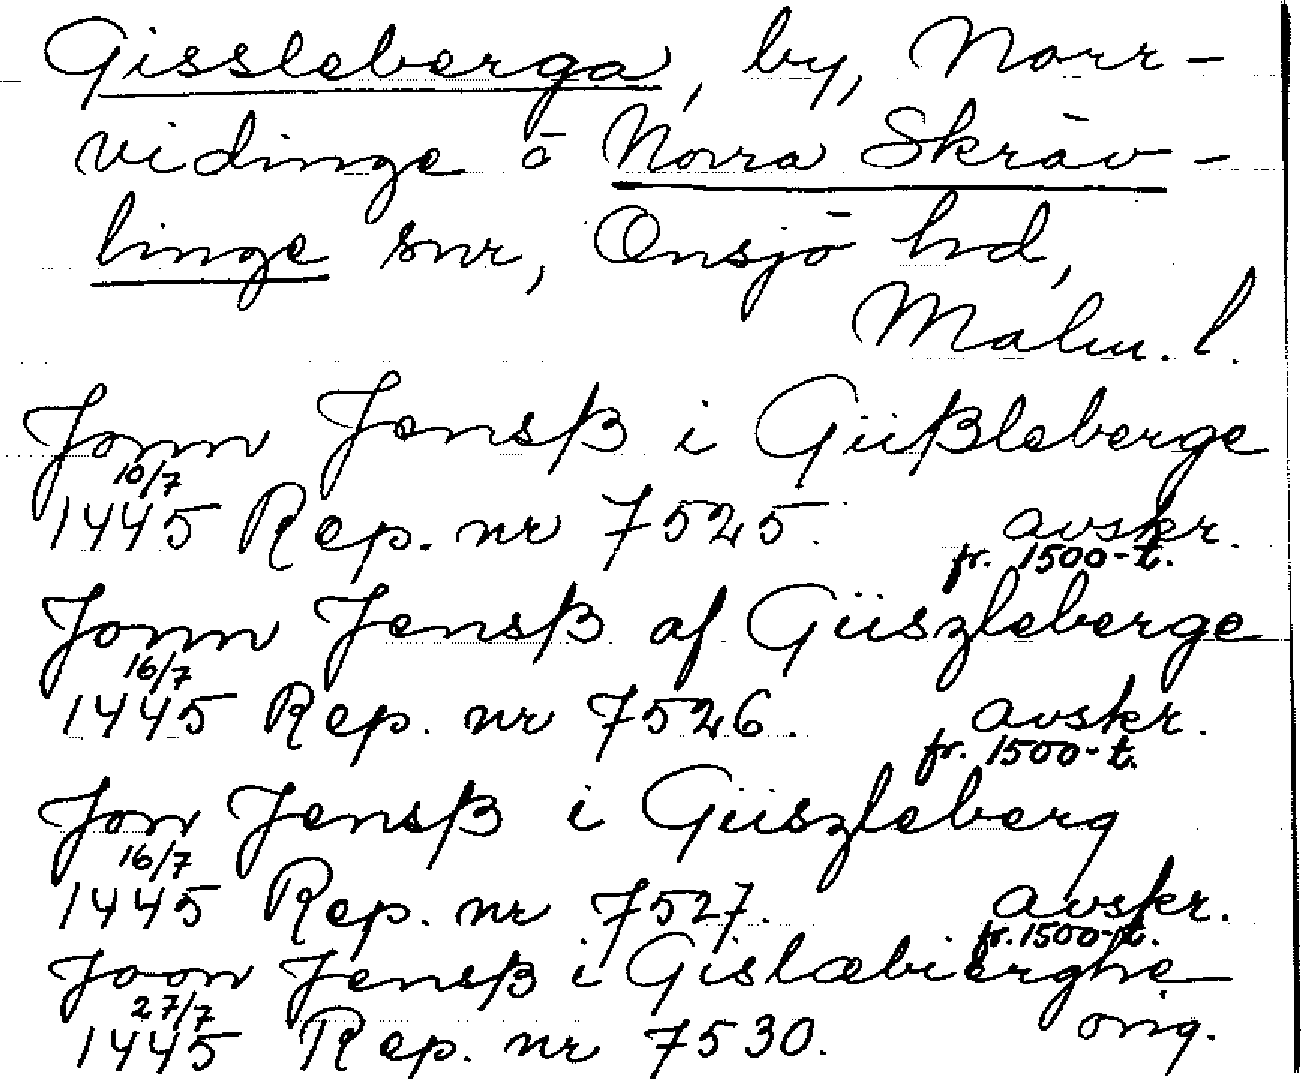 Gissleberga, by, Norr-
vidinge o Norra Skräv-
linge snr, Onsjö hd,
Malm. l.
Jonn Jensß i Güßleberge
10/7
1445 Rep. nr 7525. avskr.
fr. 1500-t.
Jonn Jensß af Güszleberge
16/7
1445 Rep. nr 7526. avskr.
fr. 1500-t.
Jon Jensß i Güszleberg
16/7
1445 Rep. nr 7527. avskr.
fr. 1500-t.
Joon Jensß i Gislæbierghe
27/7
1445 Rep. nr 7530. orig.